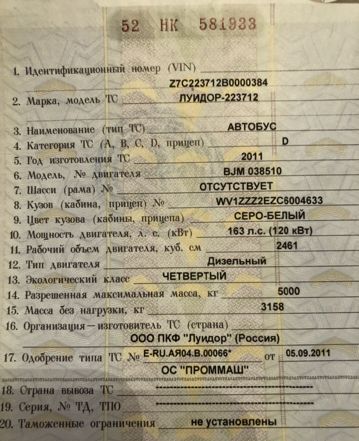 52 НК 581933
1. Идентификационный номер (VIN)
Z7C223712B0000384
2. Марка, модель ТС ЛУИДОР-223712
3. Наименование (тип ТС) АВТОБУС
4. Категория ТС (A, B, C, D, прицеп) D
5. Год изготовления ТС 2011
6. Модель, № двигателя BJM 038510
7. Шасси (рама) № ОТСУТСТВУЕТ
8. Кузов (кабина, прицеп) № WV1ZZZ2EZC6004633
9. Цвет кузова (кабины, прицепа) СЕРО-БЕЛЫЙ
10. Мощность двигателя, л. с. (кВт) 163 л.с. (120 кВт)
11. Рабочий объем двигателя, куб. см 2461
12. Тип двигателя Дизельный
13. Экологический класс ЧЕТВЕРТЫЙ
14. Разрешенная максимальная масса, кг 5000
15. Масса без нагрузки, кг 3158
16. Организация—изготовитель ТС (страна)
ООО ПКФ "Луидор" (Россия)
17. Одобрение типа ТС № E-RU.АЯ04.B.00066* от 05.09.2011
ОС "ПРОММАШ"
18. Страна вывоза ТС
19. Серия, № ТД, ТПО
20. Таможенные ограничения не установлены